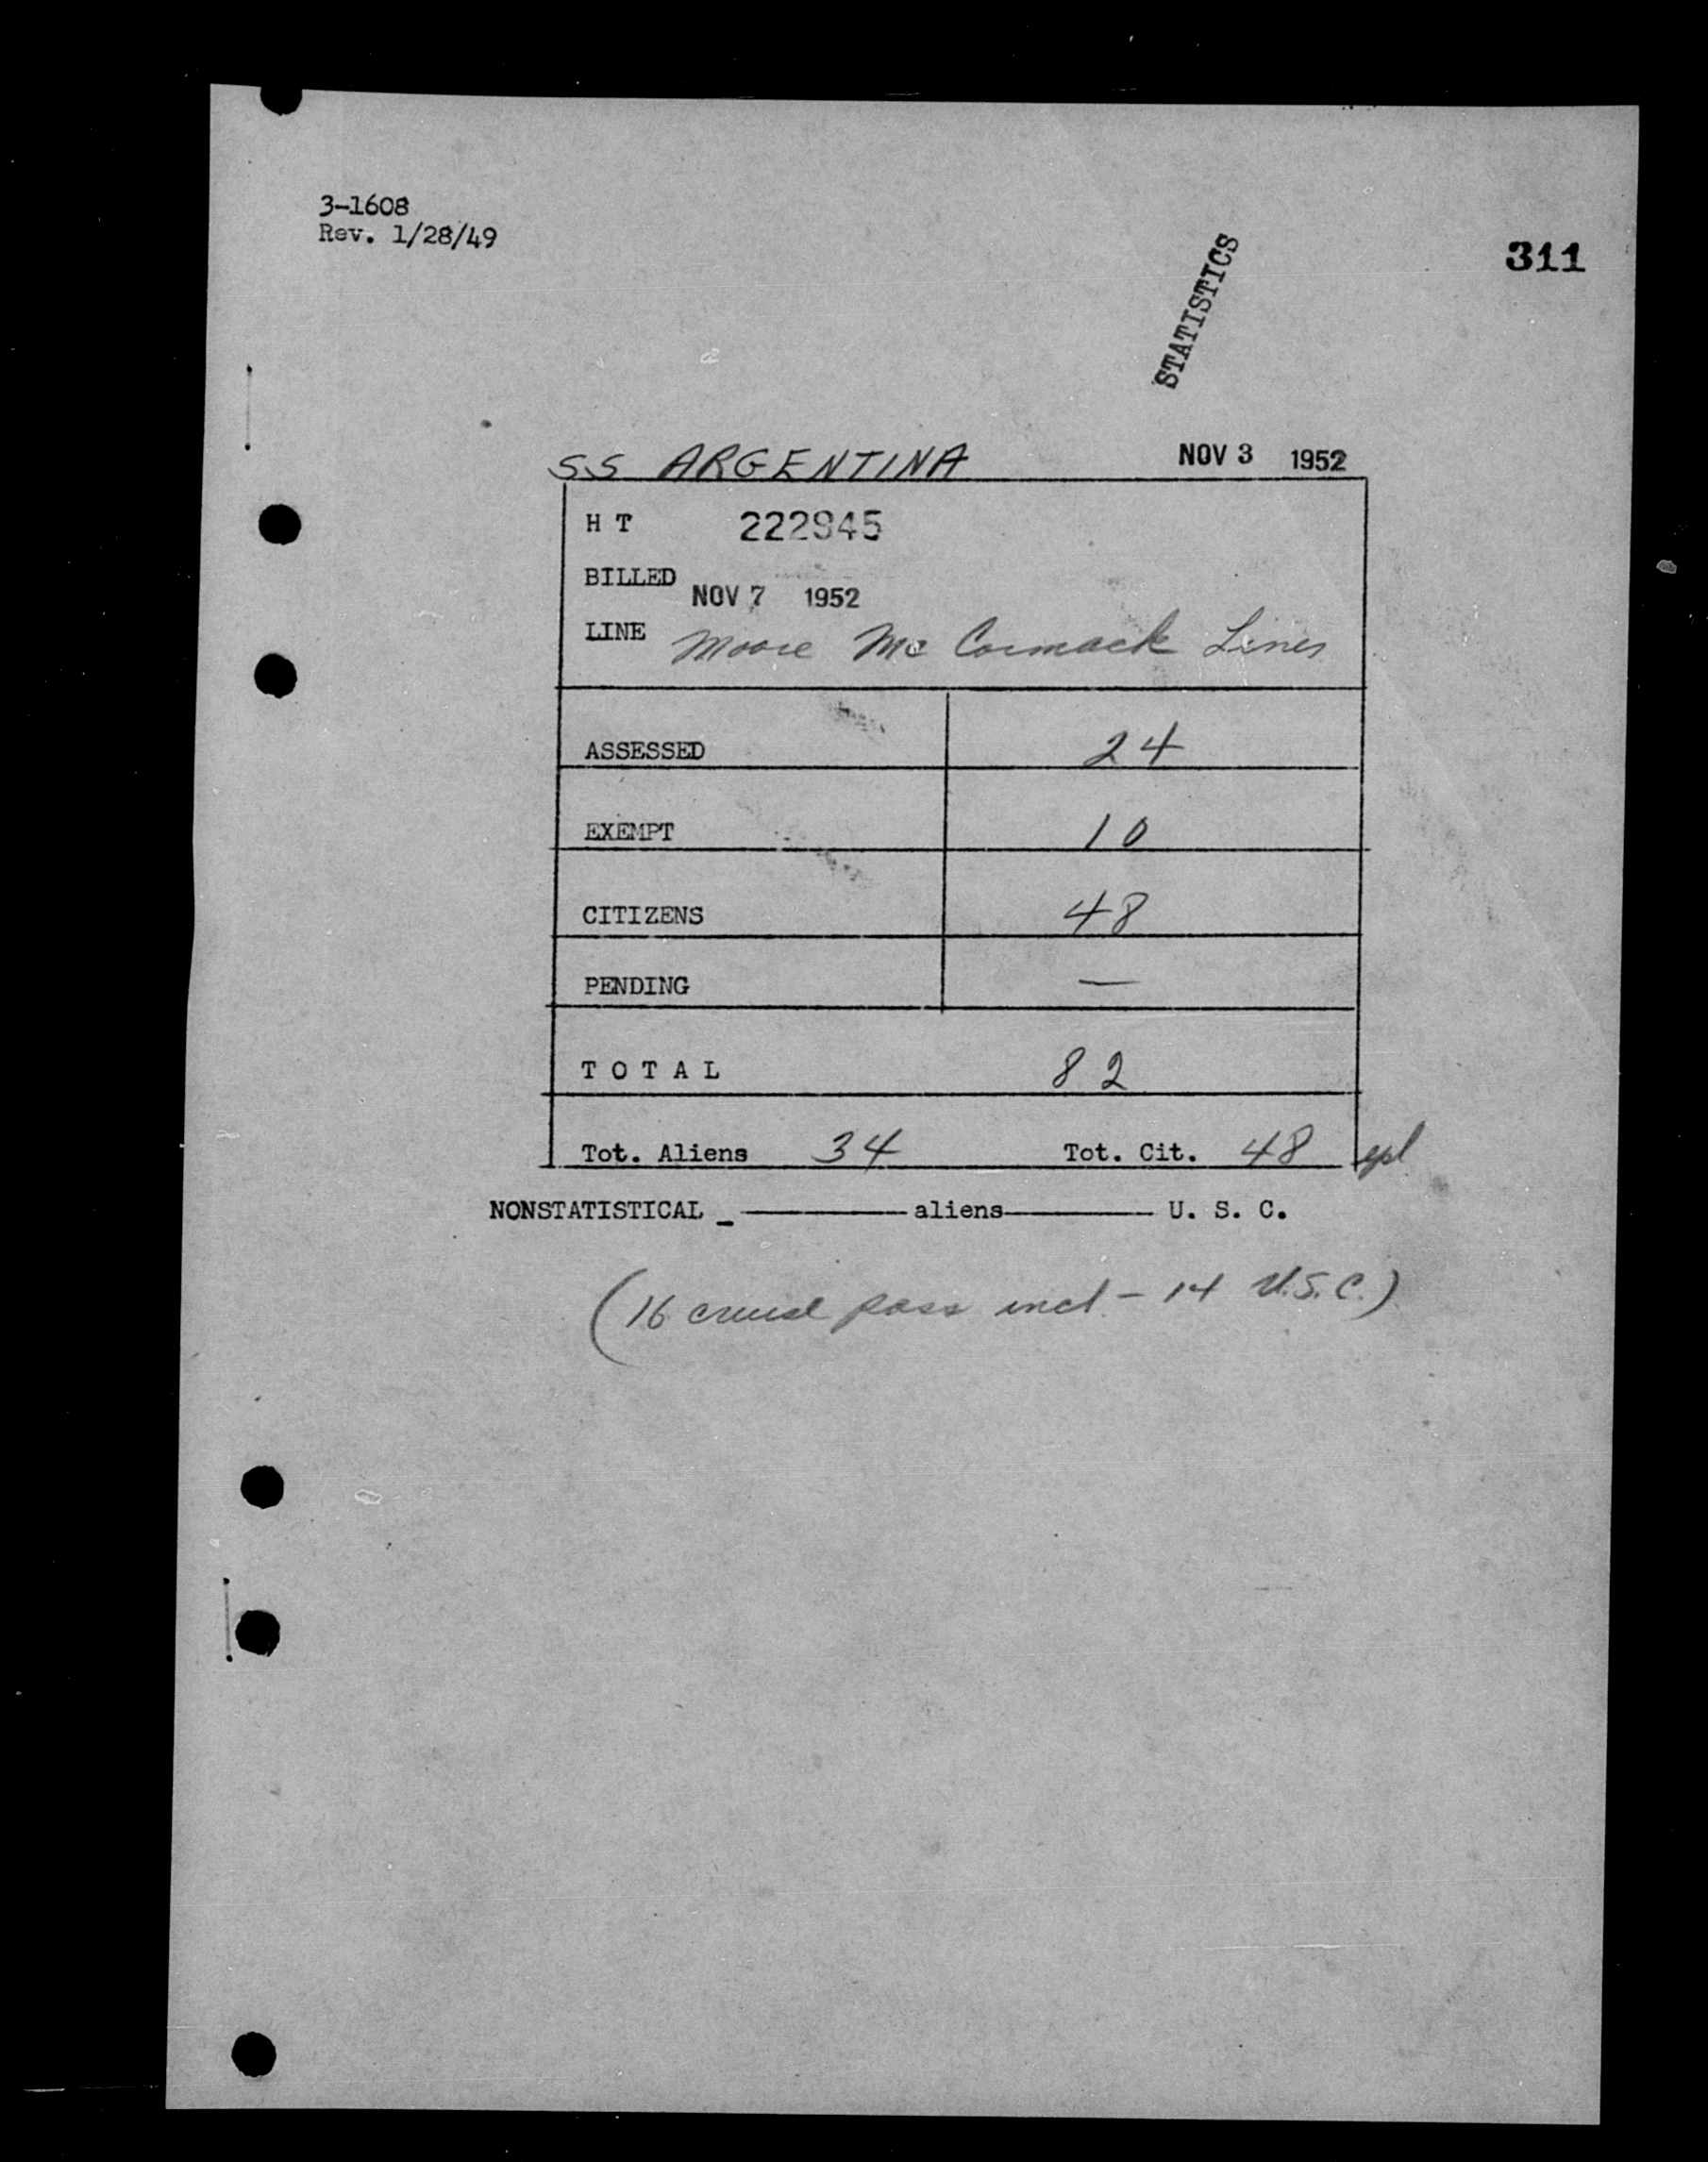 3-1608
Rev. 1/28/49
311
STATISTICS
SS ARGENTINA NOV 3 1952
H T 222945
BILLED NOV 7 1952
LINE Moore Mc Cormack Lines
ASSESSED 24
EXEMPT 10
CITIZENS 48
PENDING —
T O T A L 82
Tot. Aliens 34 Tot. Cit. 48
NONSTATISTICAL _ ———— aliens ———— U. S. C.
(16 cruise pass incl - 14 U.S.C.)